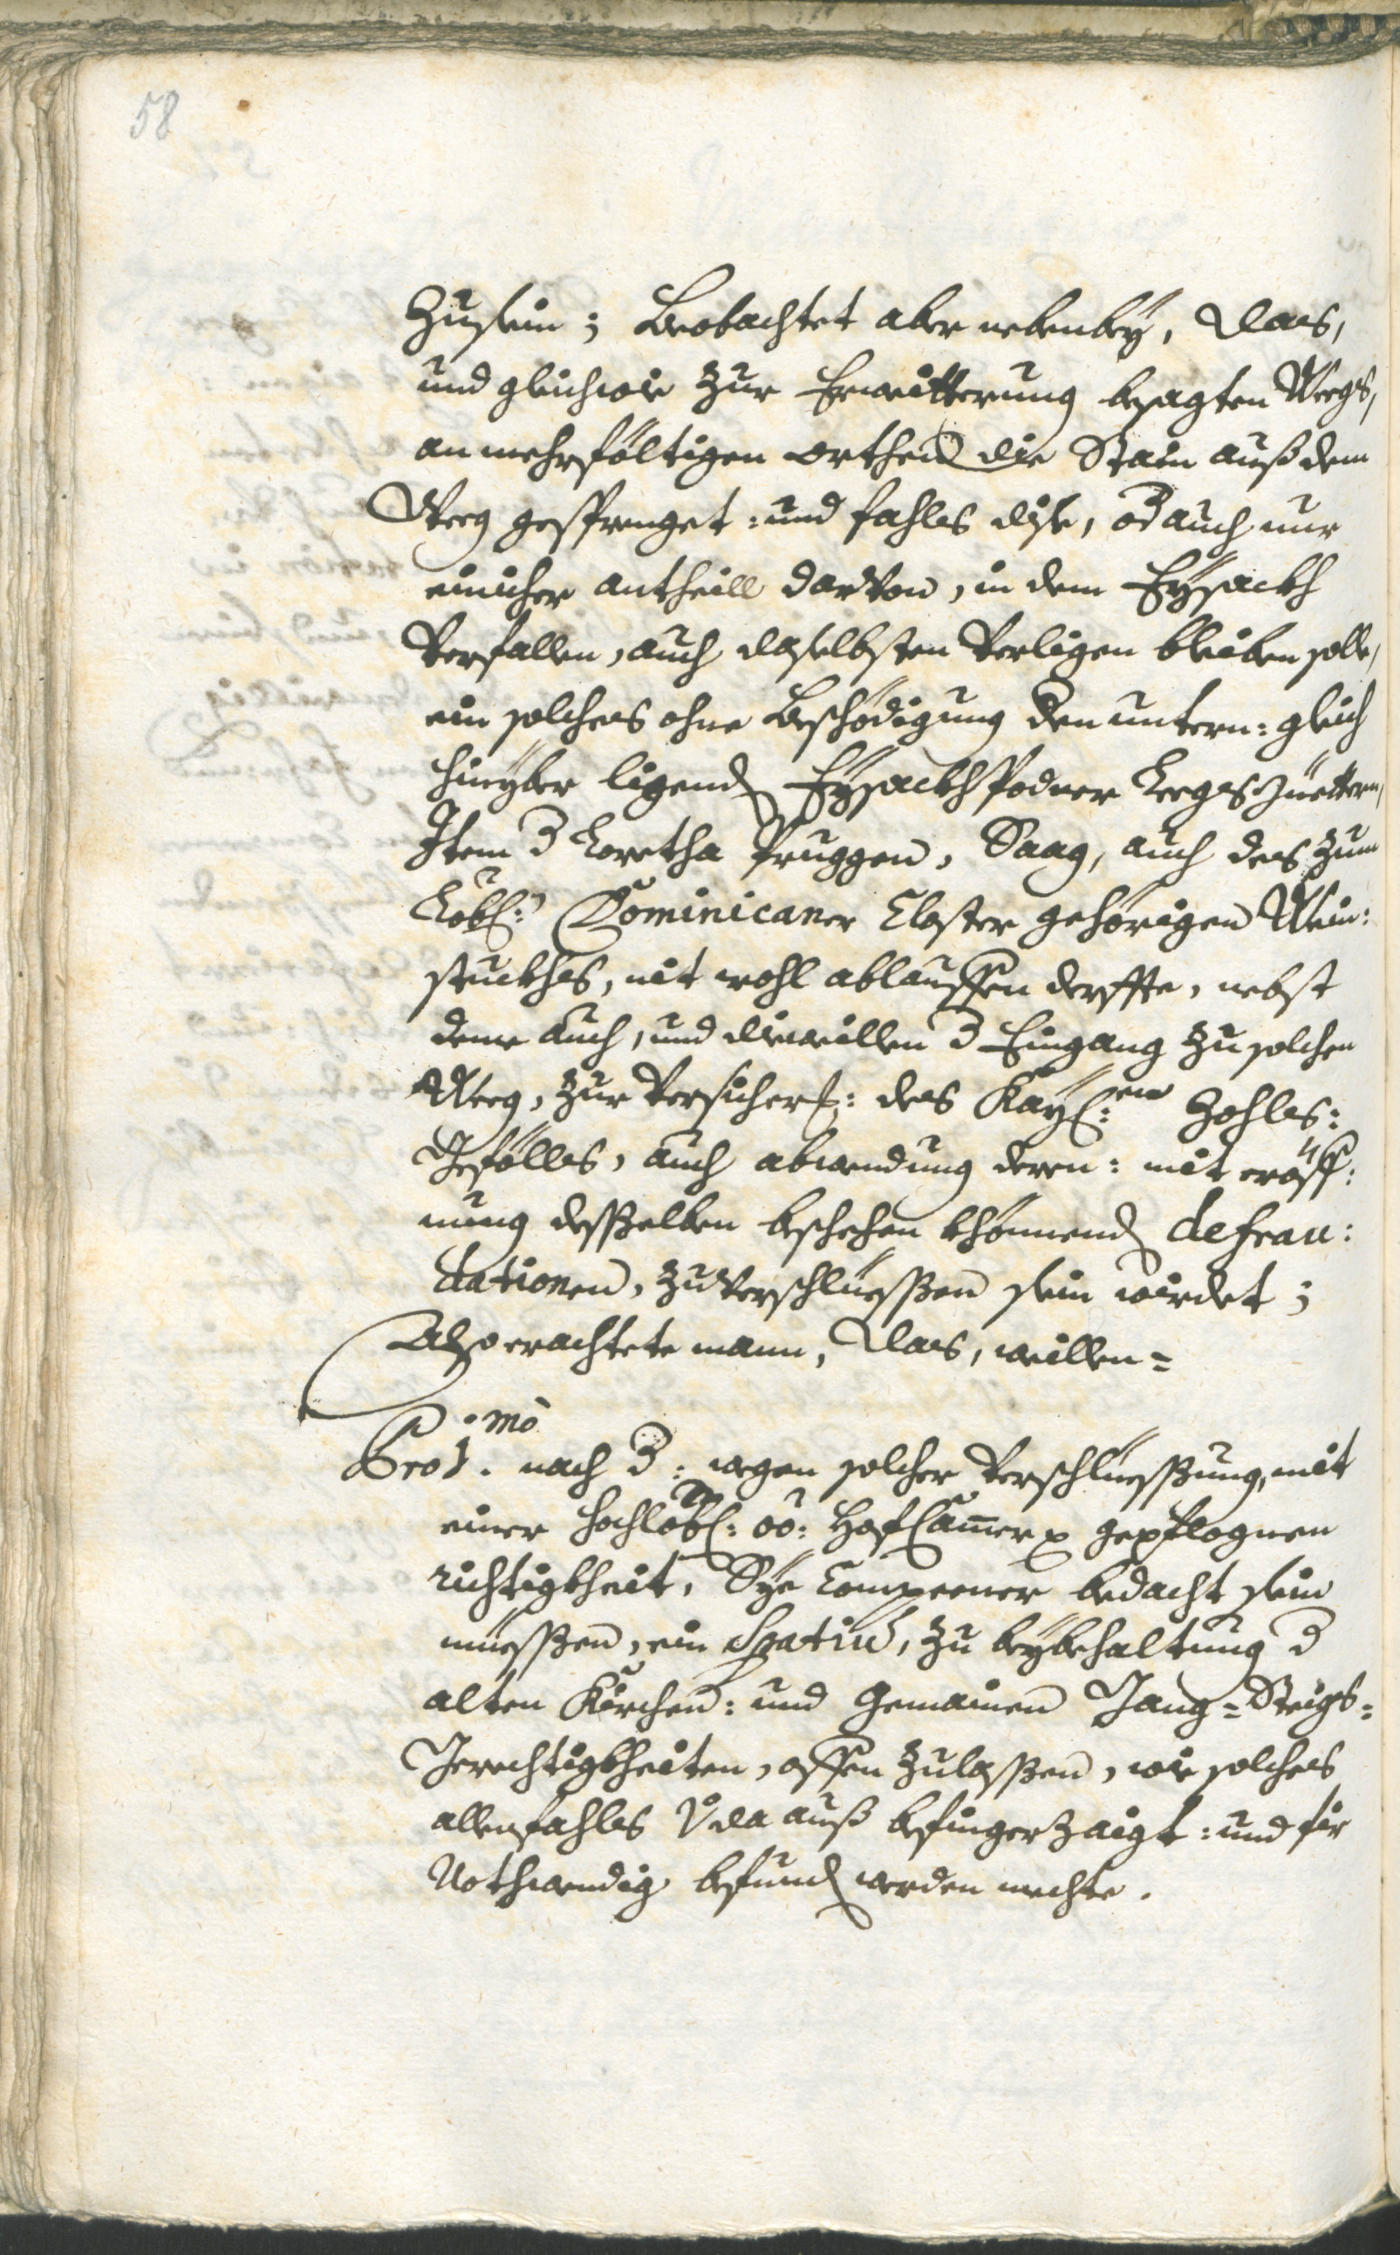 58
Zusein; Beobachtet aber nebenbey, Das,
und gleichwie zur Erweitterung besagten Weegs,
an mehrföltigen orthen die Stain auß dem
Weeg gesprenget: und fahls dise, od auch nur
einicher antheill darvon, in dem Eysackh
verfallen, auch daselbsten verligen bleiben solle,
ein solches ohne Beschödigung den untern: gleich
hinyber ligend Eysackh Podner Leeges
Item d Loretha Pruggen, Saag, auch des zum
Löbl: Dominicaner Closter gehörigen Wein:
stuckhs, nit wohl ablauffen derffte, nebst
deme auch, und dieweillen d Eingang zu solchen
Weeg, zur Versicher: des Kayl:en Zohles:
Gefölles, auch abwendung deren: mit eröff:
nung desselben beschehen khönnend defrau:
dationen, zu verschliessen sein wirdet;
Also erachtete mann, Das, weillen=
Pro 1.mo nach d: wegen solcher Verschliessung, mit
einer Hochlöbl: oö: HofCammer gepflognen
richtigkheit, Sye Comparenten bedacht sein
müessen, ein Spatiu, zu beybehaltung d
alten Kirchen: und Gemainen Gang=Steigs=
Gerechtigkheiten, offen zulassen, wie solches
allenfahls v da auß befingerzaigt: und fir
Nothwendig befund werden mechte.